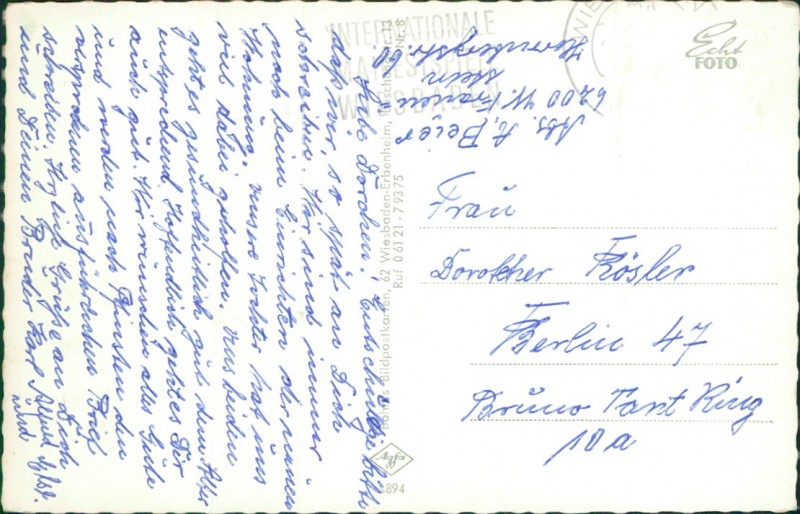 Liebe Dorchen! Entschuldige bitte
daß wir, so spät an Dich
schreiben. Wir sind immer
noch beim Einrichten der neuen
Wohnung. Unsere Tochter hat uns
viel dabei geholfen. Uns beiden
geht es gesundheitlich gut dem Alter
entsprechend. Hoffentlich geht es Dir
auch gut. Wir wünschen alles Gute
und werden nach Pfingsten den
versprochenen ausführlichen Brief
schreiben. Herzlich Grüße an Dich
und Deinen Bruder Karl Alfred
INTERNATIONALE
MAIFESTSPIELE
WIESBADEN
WIE
Bildpostkarten, 62 Wiesbaden-Erbenheim,
Ruf 0 61 21 - 7 93 75
Agfa
Echt
FOTO
Abs. A. Beier
6200 W. Frauen=
stein
Herrnbergstr. 60
Frau
Dorothea Rösler
Berlin 47
Bruno Taut Ring
10a